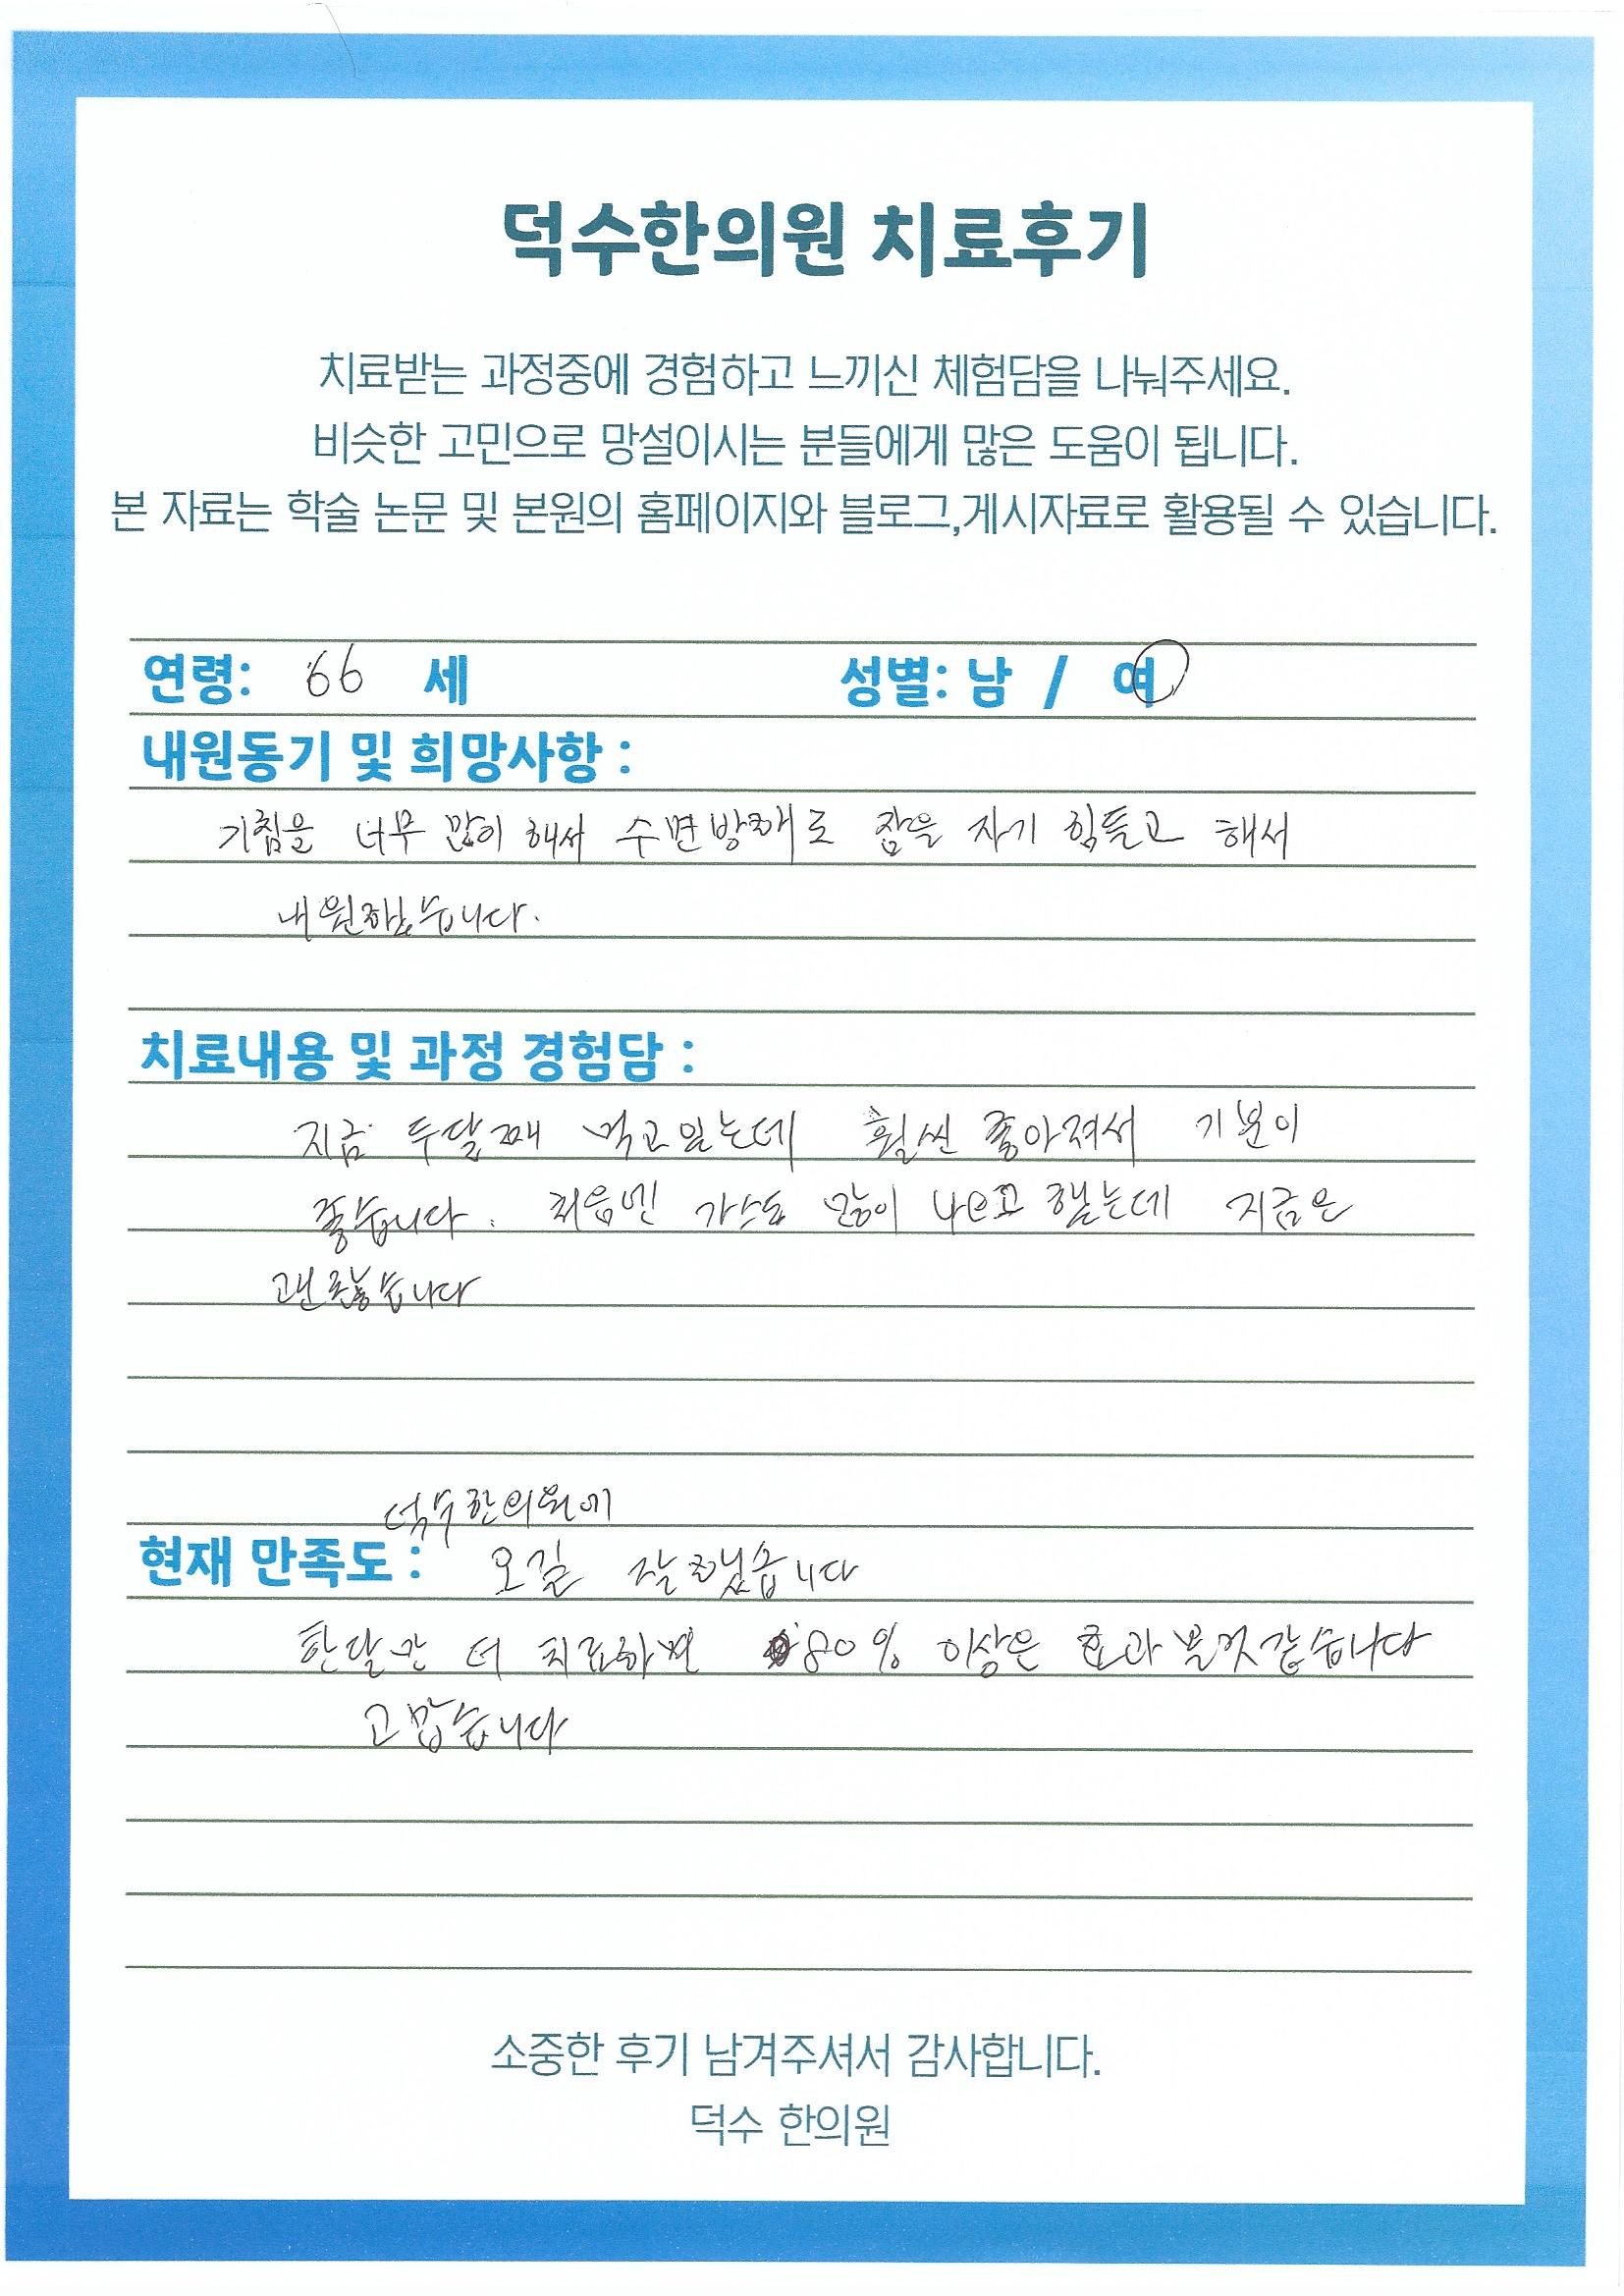 덕수한의원 치료후기
치료받는 과정중에 경험하고 느끼신 체험담을 나눠주세요.
비슷한 고민으로 망설이시는 분들에게 많은 도움이 됩니다.
본 자료는 학술 논문 및 본원의 홈페이지와 블로그,게시자료로 활용될 수 있습니다.
연령: 66 세 성별: 남 / 여
내원동기 및 희망사항 :
기침을 너무 많이 해서 수면방해로 잠을 자기 힘들고 해서
내원했습니다.
치료내용 및 과정 경험담 :
지금 두달째 먹고있는데 훨씬 좋아져서 기분이
좋습니다. 처음엔 가스도 많이 나오고 했는데 지금은
괜찮습니다
덕수한의원에
현재 만족도 : 오길 잘했습니다
한달만 더 치료하면 80% 이상은 효과볼것같습니다
고맙습니다
소중한 후기 남겨주셔서 감사합니다.
덕수 한의원